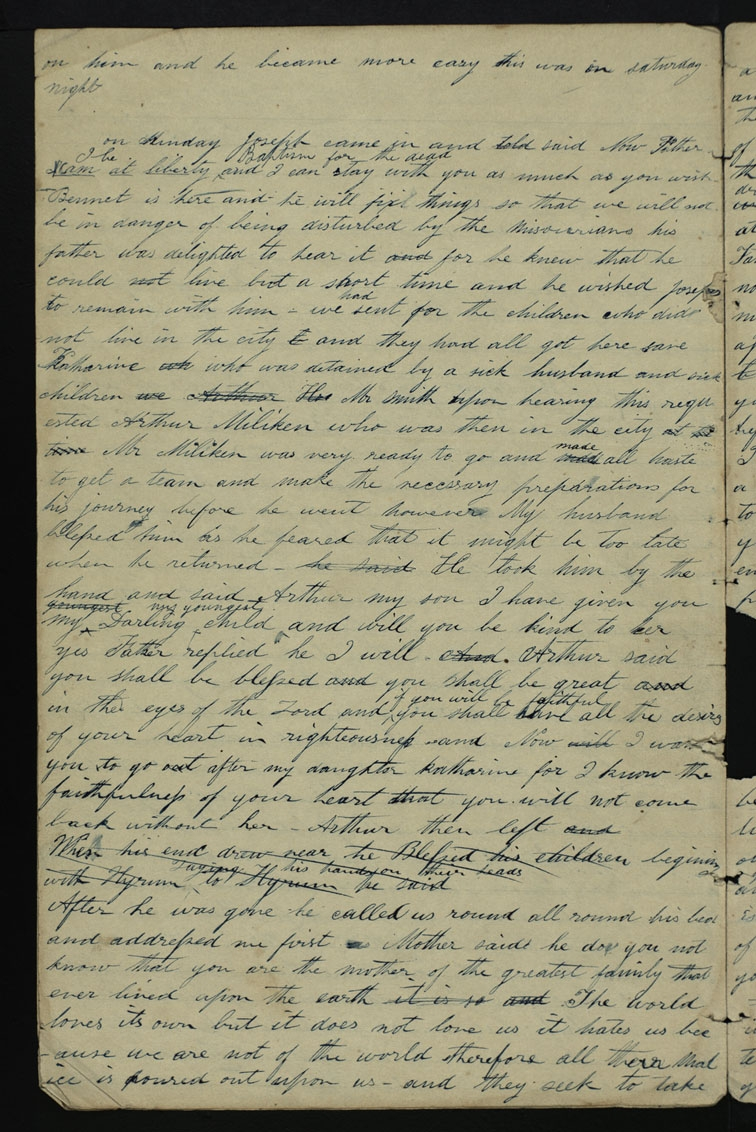 on him and he became more easy this was on saturday
night
on sunday Joseph came in and told said Now Father
I be Baptism for the dead
I am at liberty and I can stay with you as much as you wish
Bennet is here and he will fix things so that we will not
be in danger of being disturbed by the Missourians his
father was delighted to hear it and for he knew that he
could not live but a short time and he wished Joseph
had
to remain with him - we sent for the children who did
not live in the city & and they had all got here save
Katharine wh who was detained by a sick husband and sick
children we Arthur Mr smith upon hearing this requ
ested Arthur Miliken who was then in the city at
time Mr Miliken was very ready to go and made all haste
to get a team and make the necessary preparations for
his journey before he went however My husband
blessed him as he feared that it might be too late
when he returned - he said He took him by the
hand and said Arthur my son I have given you
youngest my youngest
my Darling child and will you be kind to her
yes Father replied he I will - And. Arthur said
you shall be blessed and you shall be great and
if you will be faithful
in the eyes of the Lord and you shall have all the desires
of your heart in righteousness and Now will I want
you to go out after my daughter Katharine for I know the
faithfulness of your heart that you will not come
back without her - Arthur then left and
When his end drew near he Blessed his children begining
Laying his hands on their heads
with Hyrum to Hyrum he said
After he was gone he called us round all round his bed
and addressed me first Mother said he do you not
know that you are the mother of the greatest family that
ever lived upon the earth it is so and The world
loves its own but it does not love us it hates us bec
-ause we are not of the world therefore all their mal
ice is poured out upon us - and they seek to take